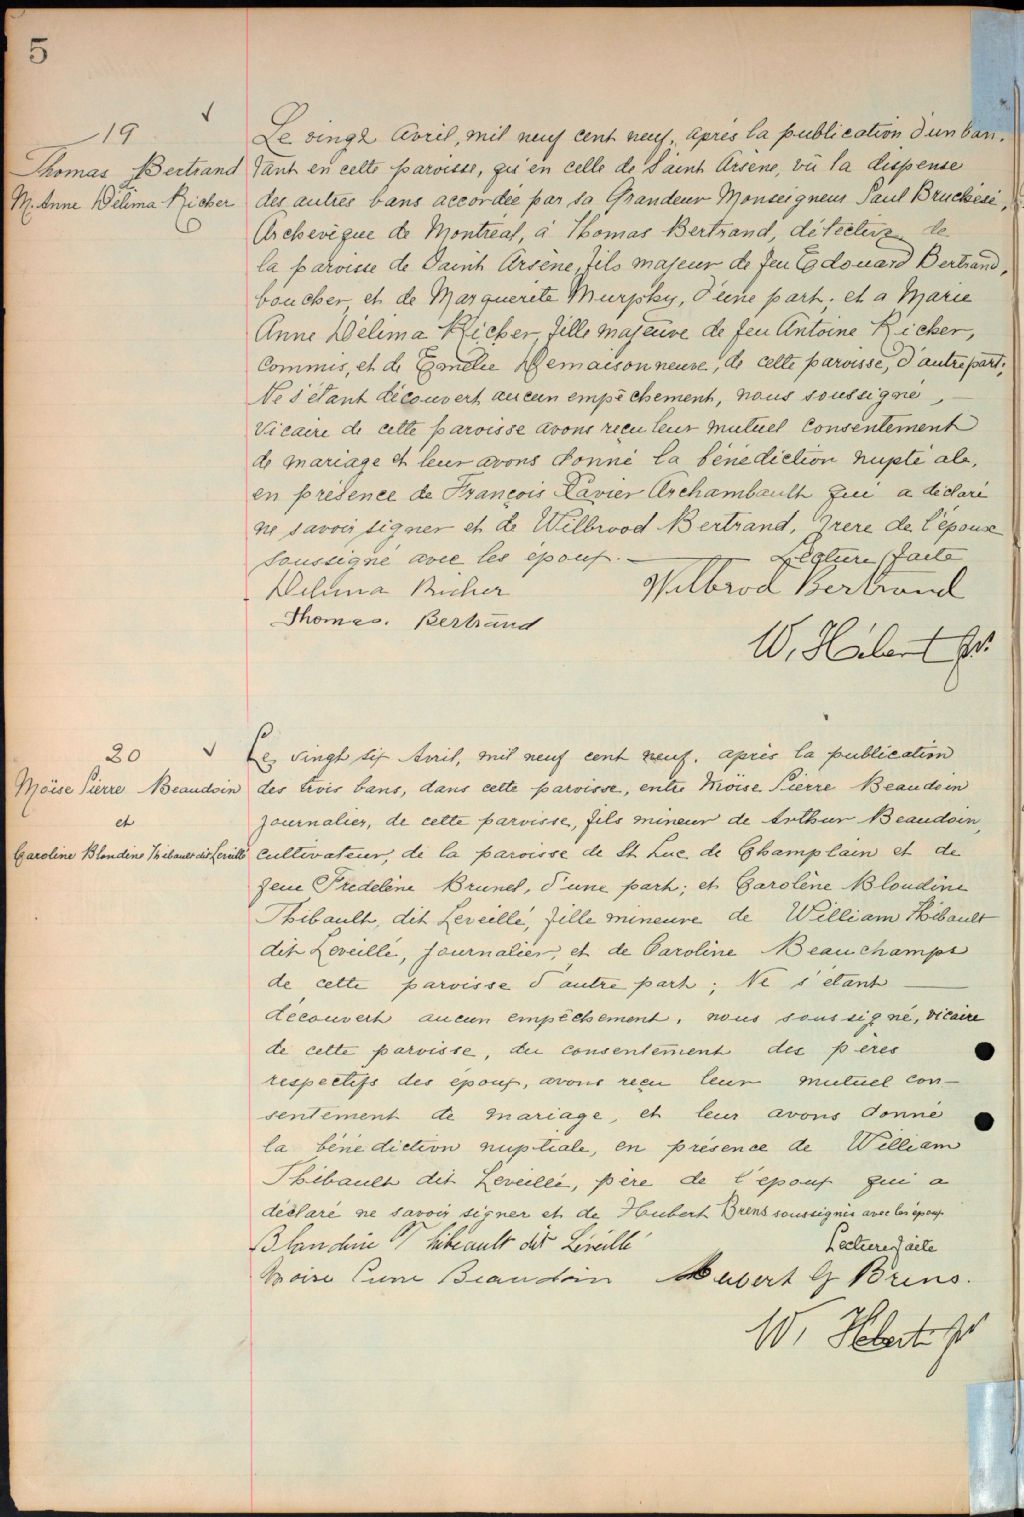 5
19
Thomas Bertrand
&
M. Anne Délima Richer
Le vingt Avril, mil neuf cent neuf, après la publication d'un ban,
tant en cette paroisse, qu'en celle de Saint Arsène, vû la dispense
des autres bans accordée par sa Grandeur Monseigneur Paul Bruchési,
Archevêque de Montréal, à Thomas Bertrand, détective de
la paroisse de Saint Arsène, fils majeur de feu Edouard Bertrand,
boucher, et de Marguerite Murphy, d'une part; et a Marie
Anne Délima Richer, fille majeure de feu Antoine Richer,
commis, et de Emélie Demaisonneuve, de cette paroisse, d'autre part;
Ne s'étant découvert aucun empêchement, nous soussigné,
Vicaire de cette paroisse avons reçu leur mutuel consentement
de mariage et leur avons donné la bénédiction nuptiale,
en présence de François Xavier Archambault qui a déclaré
ne savoir signer et de Wilbrood Bertrand, frere de l'époux
soussigné avec les époux. — Lecture faite
Delima Richer Wilbrod Bertrand
Thomas. Bertrand
W. Hébert ptr.
20
Moïse Pierre Beaudoin
et
Caroline Blondine Thibault dit Leveillé
Le vingt six Avril, mil neuf cent neuf, après la publication
des trois bans, dans cette paroisse, entre Moïse Pierre Beaudoin
journalier, de cette paroisse, fils mineur de Arthur Beaudoin,
cultivateur, de la paroisse de St Luc de Champlain et de
feue Fredeline Brunel, d'une part; et Caroline Blondine
Thibault, dit Leveillé, fille mineure de William Thibault
dit Leveillé, journalier, et de Caroline Beauchamps
de cette paroisse d'autre part; Ne s'étant —
découvert aucun empêchement, nous soussigné, vicaire
de cette paroisse, du consentement des pères
respectifs des époux, avons reçu leur mutuel con-
sentement de mariage, et leur avons donné
la bénédiction nuptiale, en présence de William
Thibault dit Leveillé, père de l'epoux qui a
déclaré ne savoir signer et de Hubert Brens soussignés avec les époux
Blandine Thibeault dit Léveillé Lecture faite
Moise Pierre Beaudoin Hubert G Brens.
W. Hébert ptr